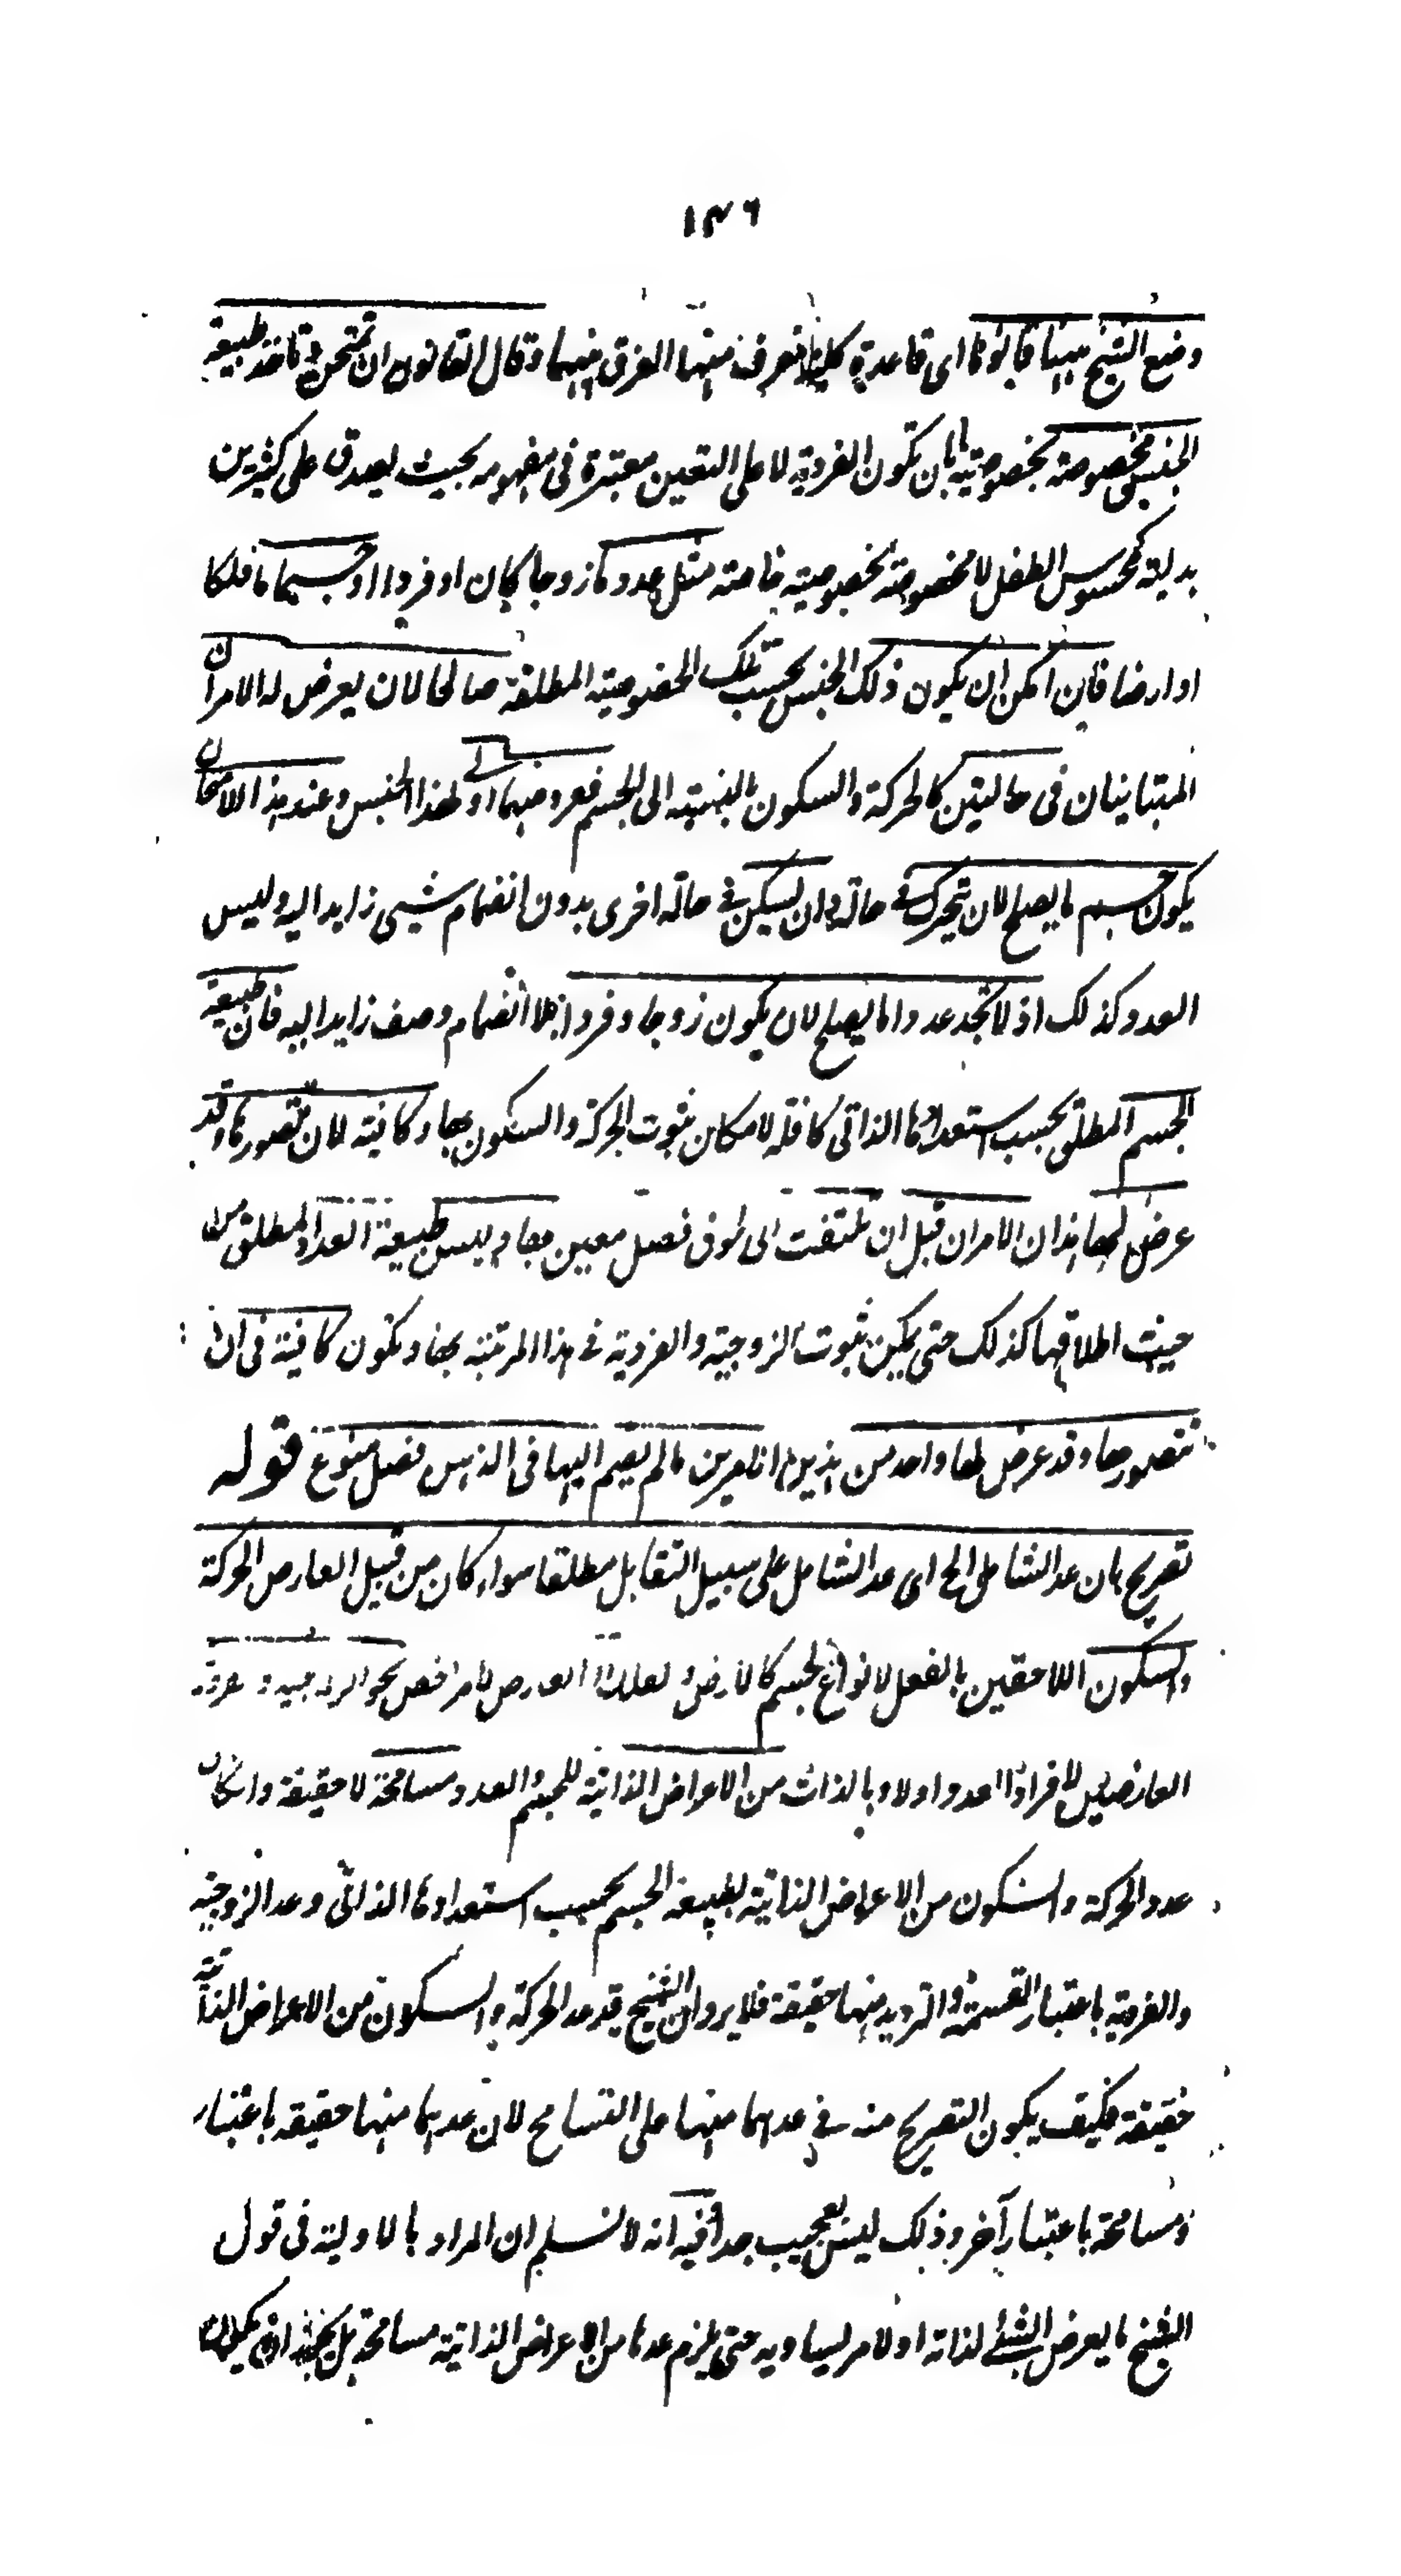 ١٣٦
وضع الشيخ ههنا قانونا اى قاعدة كلية تعرف منها الفرق بينهما وقال القانون ان تمتحن وتاخذ طبيعة
الجنس مخصوصة بخصوصية بان تكون الفردية لا على التعين معتبرة فى مفهومه بحيث يصدق على كثيرين
بدلية كمحسوس الطفل لا مخصوصة بخصوصية خاصة مثل عدد ما زوجا كان او فردا او جسما ما فلكا
او ارضا فان امكن ان يكون ذلك الجنس بحسب تلك الخصوصية المطلقة صالحا لان يعرض له الامران
المتباينان فى حالتين كالحركة والسكون بالنسبة الى الجسم فعروضهما اولى لهذا الجنس وعند هذا الامتحان
يكون جسم ما يصلح لان يتحرك فى حالة وان يسكن فى حالة اخرى بدون انضمام شيى زايد اليه وليس
العدد كذلك اذ لا تجد عددا ما يصلح لان يكون زوجا وفردا بلا انضمام وصف زايد اليه فان طبيعة
الجسم المطلق بحسب استعدادها الذاتى كافلة لامكان ثبوت الحركة والسكون بها وكافية لان تتصورها وقد
عرض لها هذان الامران قبل ان تلتفت الى لحوق فصل معين بها وليس طبيعة العدد المطلق من
حيث اطلاقها كذلك حتى يمكن ثبوت الزوجية والفردية فى هذا المرتبة بها وتكون كافية فى ان
تتصورها وقد عرض لها واحد من هذين الامرين ما لم يضم اليها فى الذهن فصل منوع قوله
تصريح بان عد الشامل الخ اى عد الشامل على سبيل التقابل مطلقا سواء كان من قبيل العارض الحركة
والسكون اللاحقين بالفعل لانواع الجسم كالارض و العارض لامر اخص نحو الزوجية و
العارضين لافراد العدد اولا وبالذات من الاعراض الذاتية للجسم والعدد مسامحة لا حقيقة وان كان
عدد الحركة والسكون من الاعراض الذاتية لطبيعة الجسم بحسب استعدادها الذاتى وعد الزوجية
والفردية باعتبار القسمة والترديد منها حقيقة فلا يرد ان الشيخ قد عد الحركة والسكون من الاعراض الذاتية
حقيقة فكيف يكون التصريح منه فى عدهما منها على التسامح لان عدهما منها حقيقه باعتبار
ومسامحة باعتبار آخر وذلك ليس بعجيب جدا فيه انه لا نسلم ان المراد بالاولية فى قول
الشيخ ما يعرض الشئ لذاته او لامر يساويه حتى يلزم عدها من الاعراض الذاتية مسامحة بل ان يكون